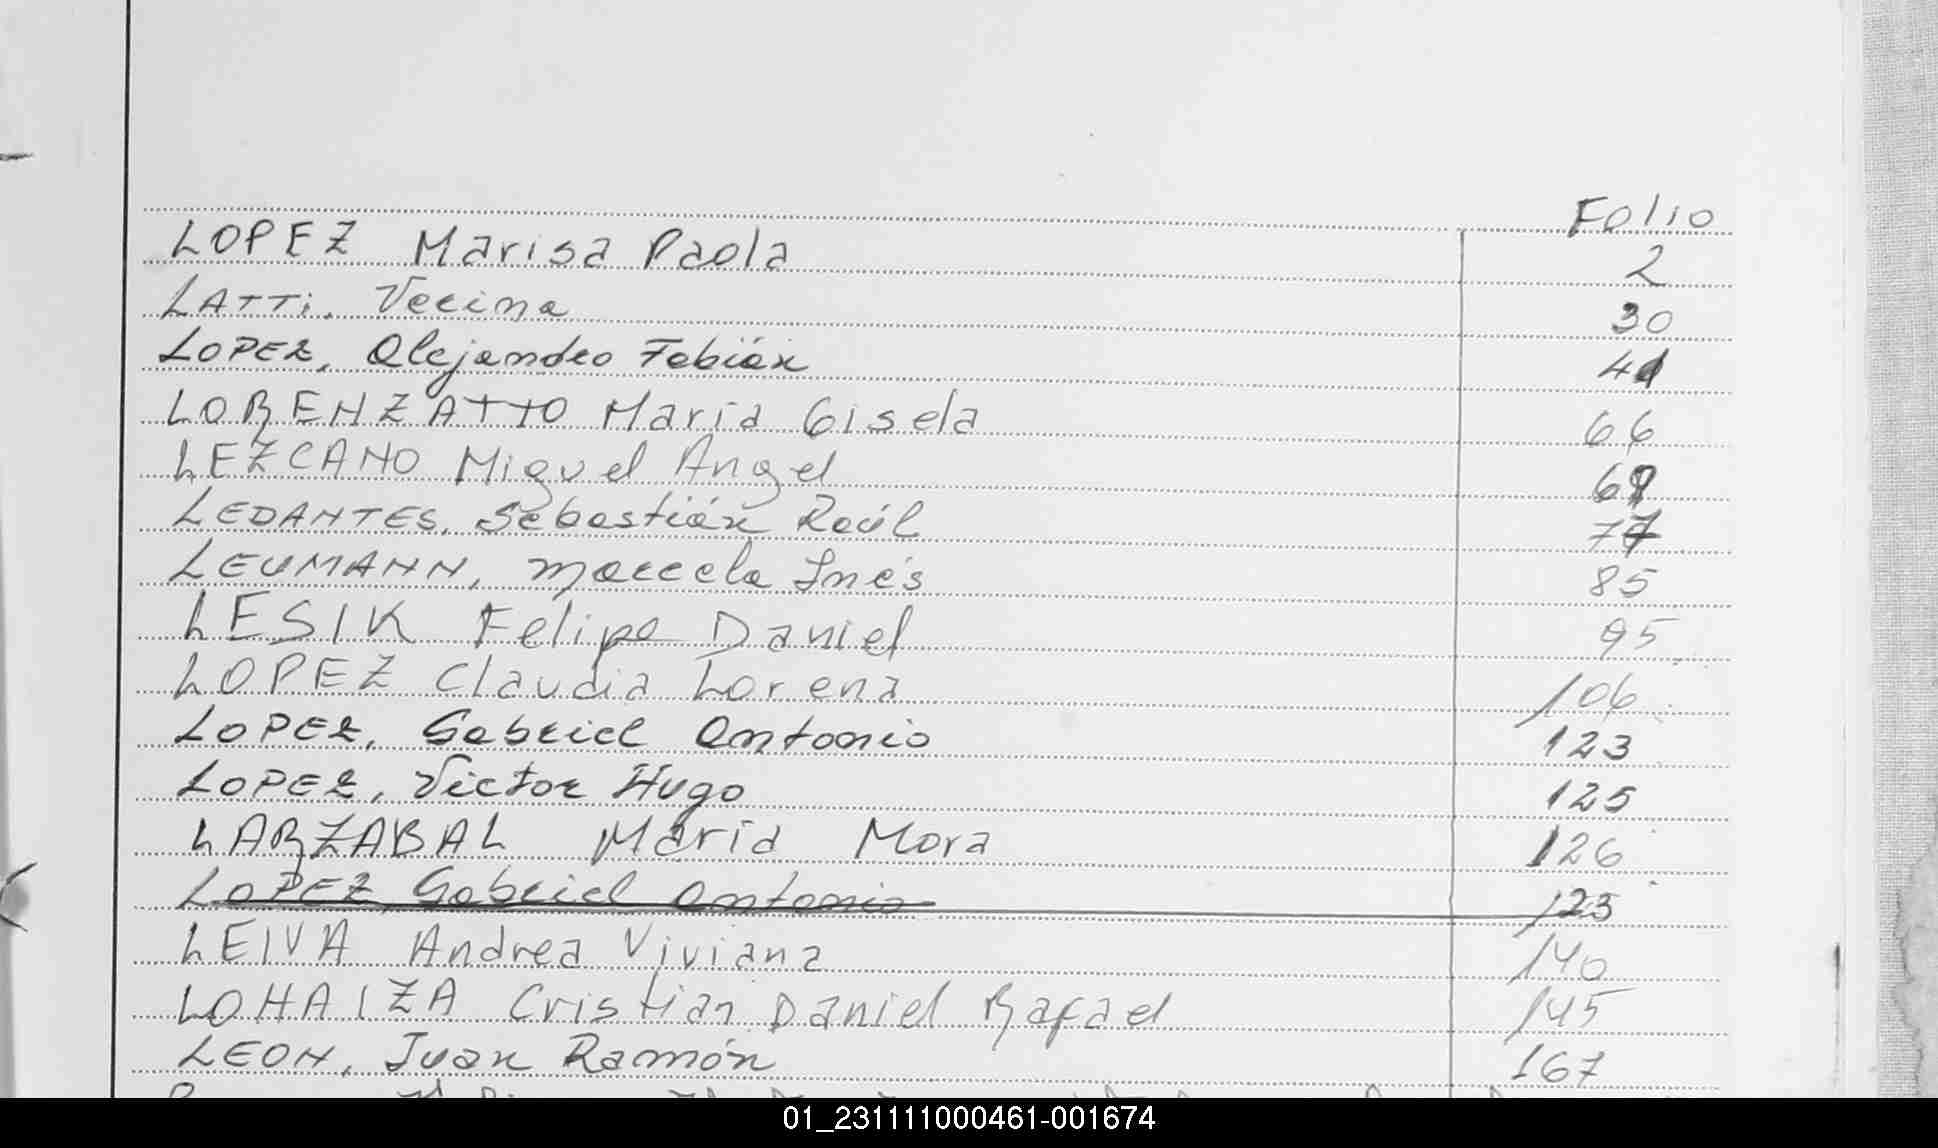 Folio
LOPEZ Marisa Paola 2
LATTi, Vecina 30
LOPEZ, Alejandro Fabián 41
LORENZATTO María Gisela 66
LEZCANO Miguel Angel
LEDANTES, Sebastián Raúl 77
LEUMANN, Marcela Inés 85
LESIK Felipe Daniel 95
LOPEZ Claudia Lorena 106
LOPEZ, Gabriel Antonio 123
LOPEZ, Victor Hugo 125
LARZABAL María Mora 126
LOPEZ, Gabriel Antonio 123
LEIVA Andrea Viviana 140
LOHAIZA Cristian Daniel Rafael 145
LEON, Juan Ramón 167
01_231111000461-001674